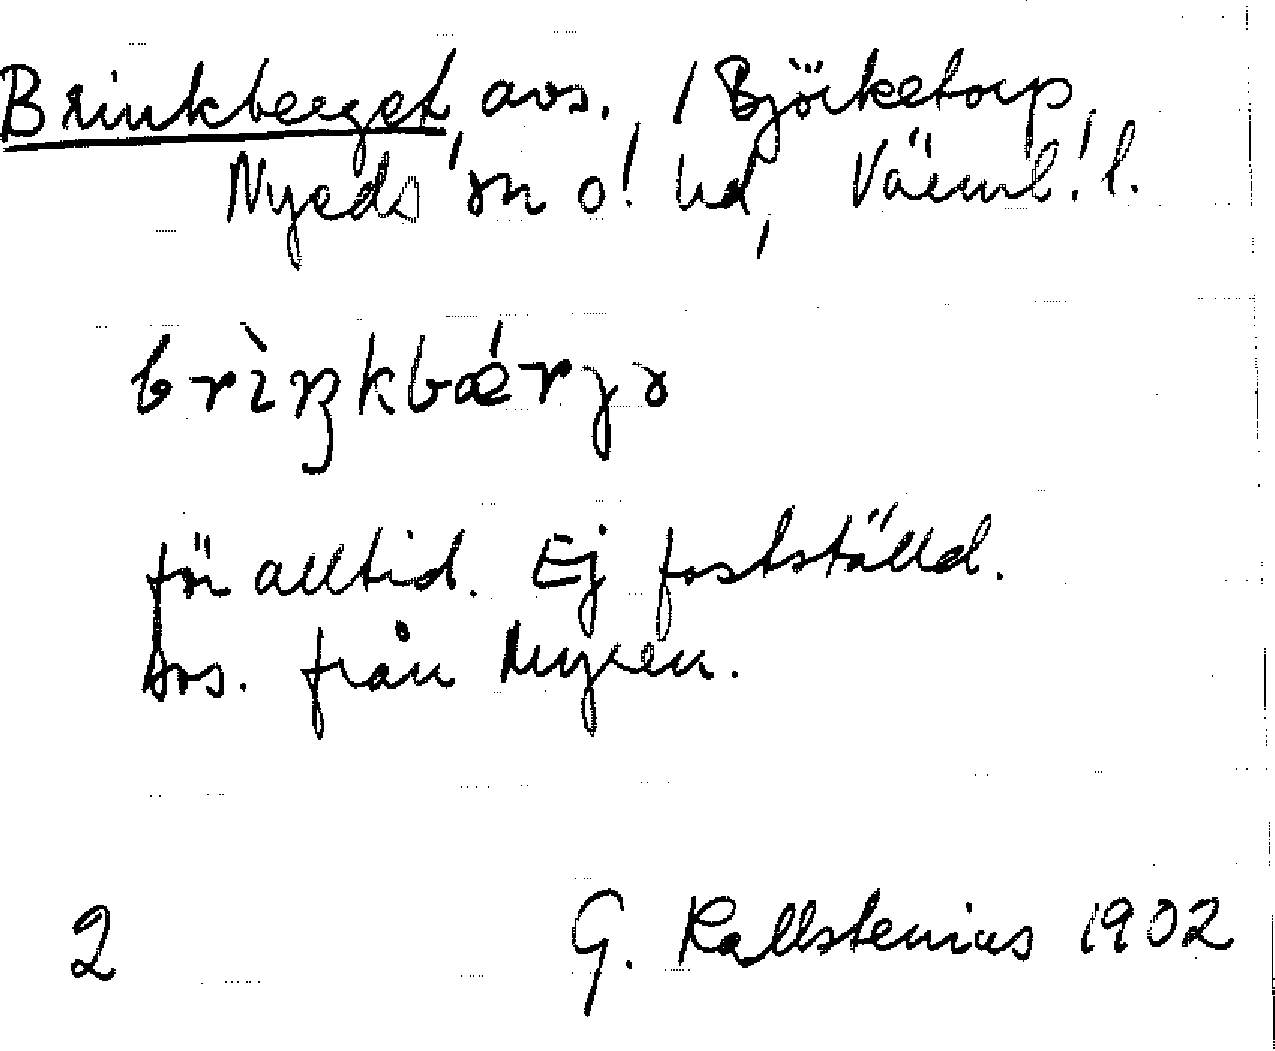 Brinkberget, avs. / Björketorp,
Nyeds sn o. hd, Värml. l.
brìŋkbǽrjə
för alltid. Ej fastställd.
Avs. från Myren.
2 G. Kallstenius 1902